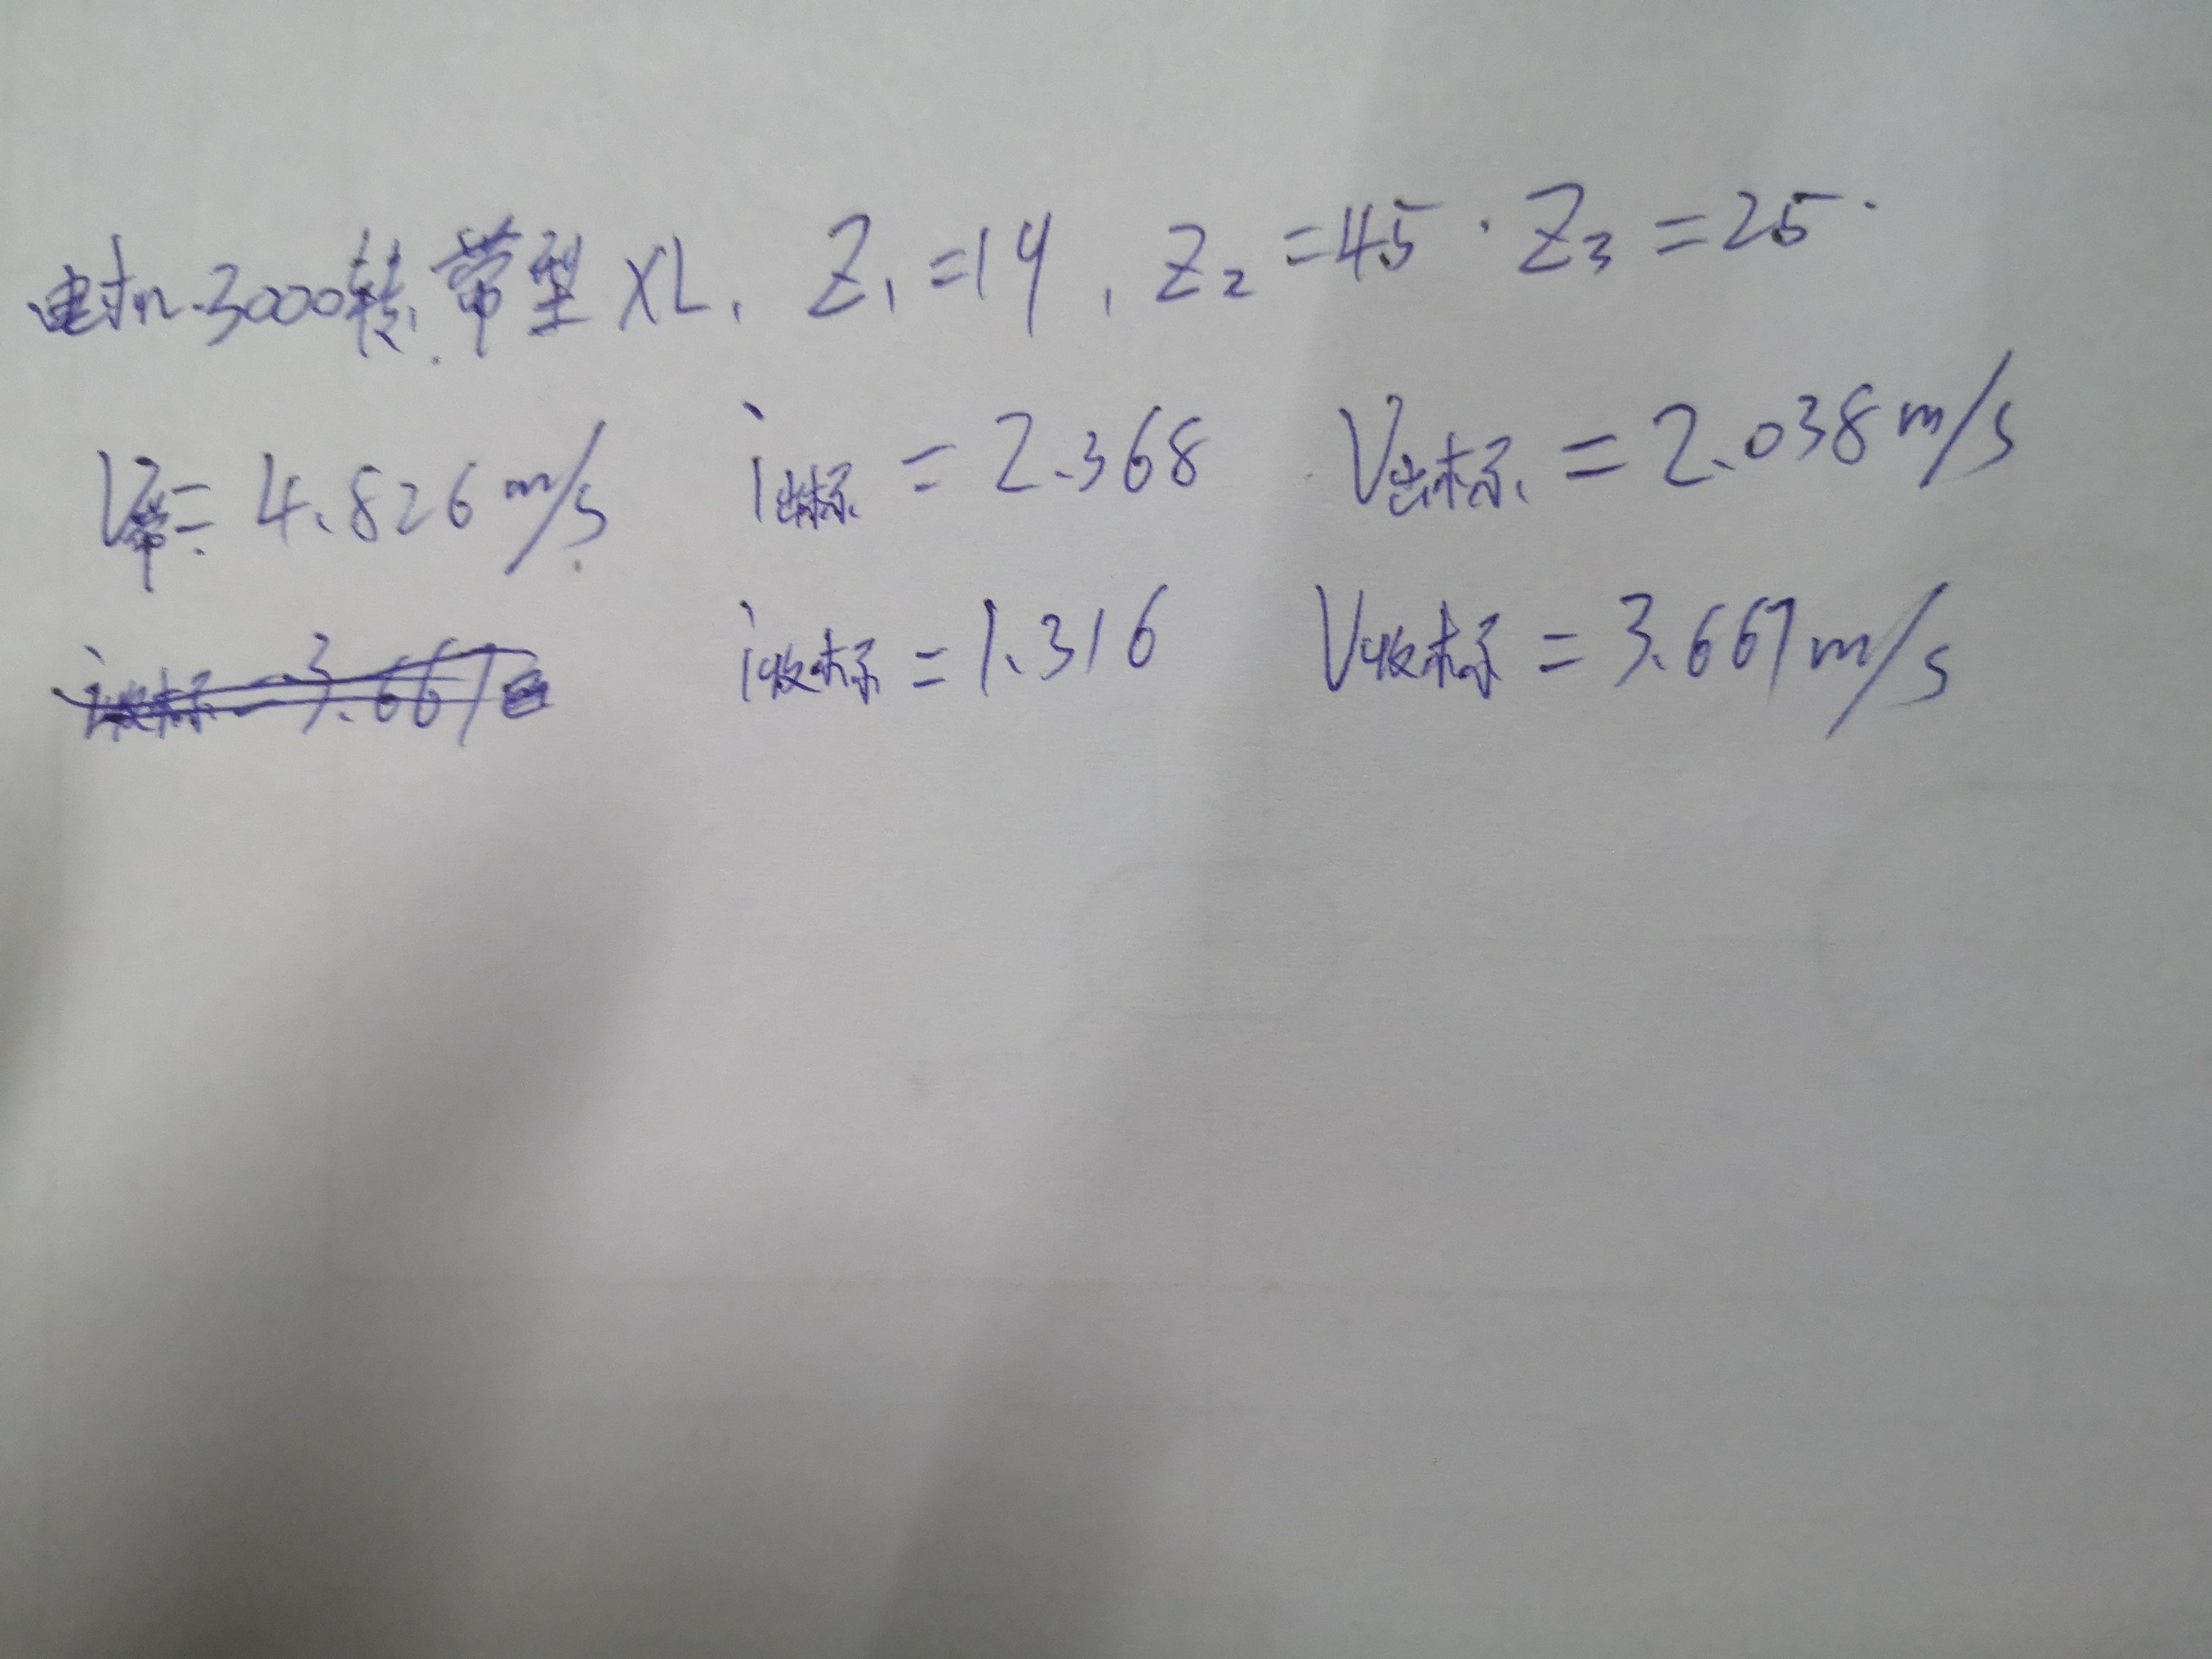 电机 3000转, 带型 XL, Z₁=19, Z₂=45. Z₃=25.
V带=4.826m/s i出标=2.368 V出标=2.038m/s
i收标=1.316 V收标=3.667m/s